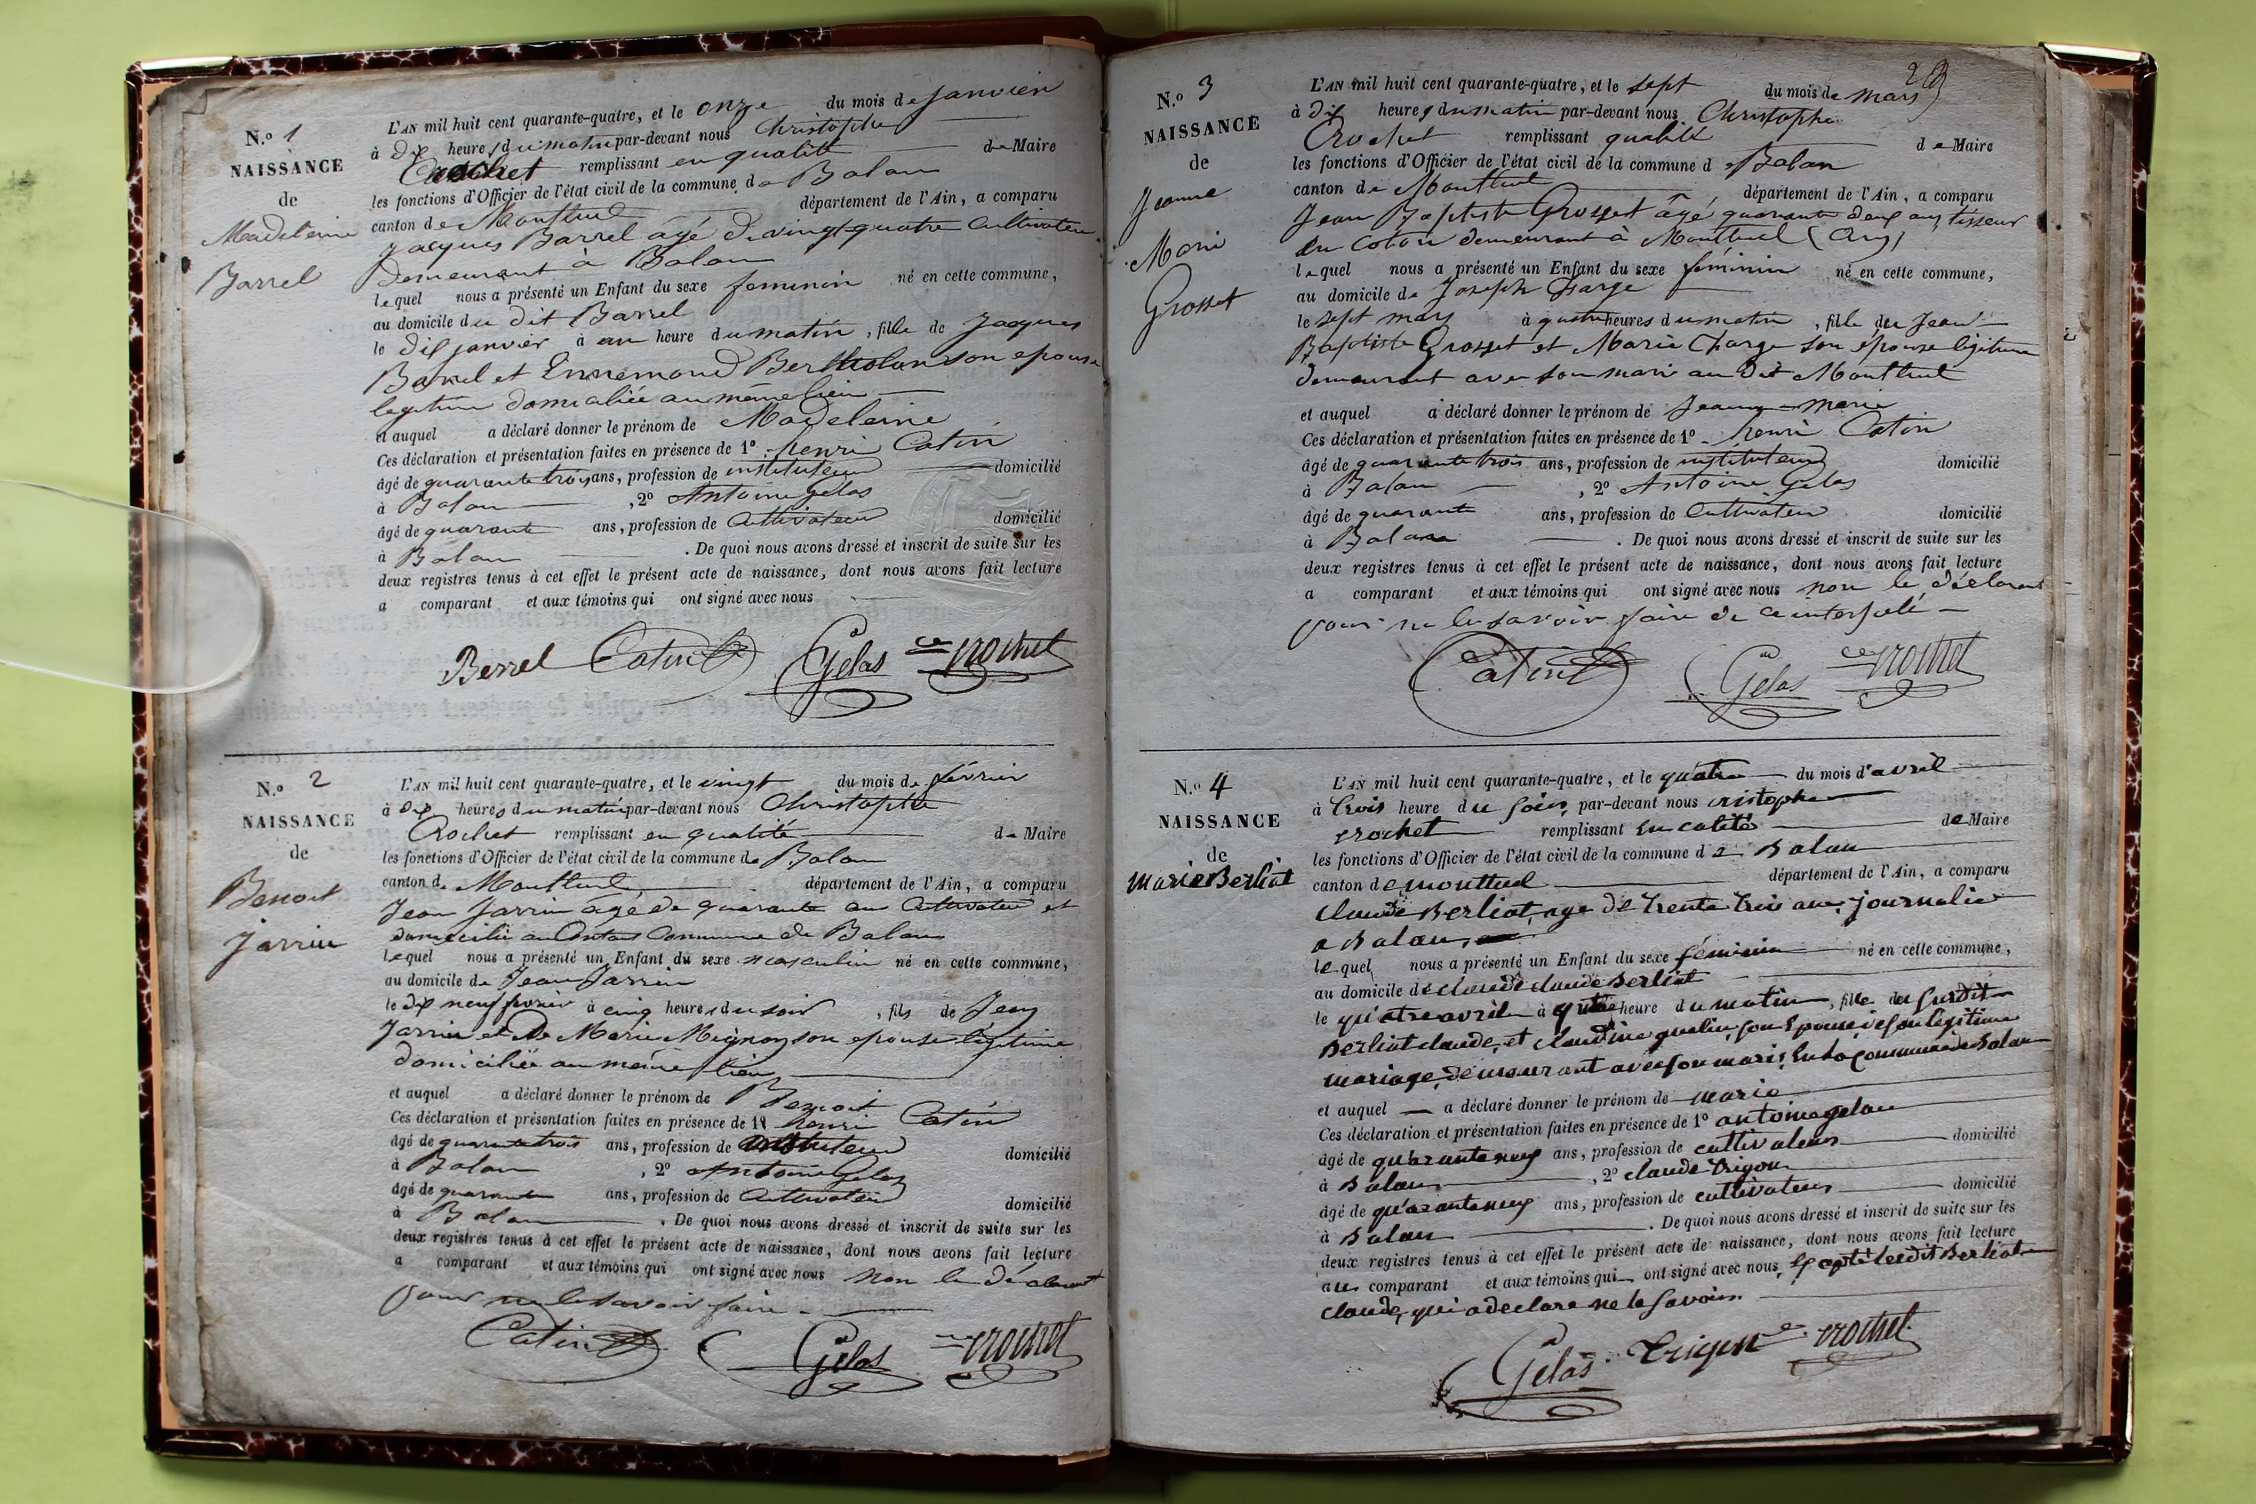 N.o 1
NAISSANCE
de
Madeleine
Barrel
L'AN mil huit cent quarante-quatre, et le onze du mois de janvier
à dix heures du matin par-devant nous Christophe
Crochet remplissant en qualité de Maire
les fonctions d'Officier de l'état civil de la commune de Balan
canton de Montluel département de l'Ain, a comparu
Jacques Barrel agé de vingt quatre cultivateur
demeurant à Balan
lequel nous a présenté un Enfant du sexe feminin né en cette commune,
au domicile du dit Barrel
le dix janvier à un heure du matin, fille de Jacques
Barrel et Ennemond Bertholon son epouse
legitime domiciliée au même lieu
et auquel a déclaré donner le prénom de Madeleine
Ces déclaration et présentation faites en présence de 1º henri Catin
âgé de quarante trois ans, profession de instituteur domicilié
à Balan, 2º Antoine Gelas
âgé de quarante ans, profession de Cultivateur domicilié
à Balan. De quoi nous avons dressé et inscrit de suite sur les
deux registres tenus à cet effet le présent acte de naissance, dont nous avons fait lecture
a comparant et aux témoins qui ont signé avec nous
Berrel Catin Gelas Crochet
N.o 2
NAISSANCE
de
Benoit
Jarrin
L'AN mil huit cent quarante-quatre, et le vingt du mois de février
à dix heures du matin par-devant nous Christophe
Crochet remplissant en qualité de Maire
les fonctions d'Officier de l'état civil de la commune de Balan
canton de Montluel département de l'Ain, a comparu
Jean Jarrin agé de quarante ans Cultivateur et
domicilié au Commune de Balan
lequel nous a présenté un Enfant du sexe masculin né en cette commune,
au domicile de Jean Jarrin
le dix neuf fevrier à cinq heures du soir, fils de Jean
Jarrin et de Marie Mignon son epouse légitime
domiciliée au même lieu
et auquel a déclaré donner le prénom de Benoit
Ces déclaration et présentation faites en présence de 1º henri Catin
âgé de quarante trois ans, profession de instituteur domicilié
à Balan, 2º Antoine Gelas
âgé de quarante ans, profession de Cultivateur domicilié
à Balan. De quoi nous avons dressé et inscrit de suite sur les
deux registres tenus à cet effet le présent acte de naissance, dont nous avons fait lecture
a comparant et aux témoins qui ont signé avec nous non le déclarant
pour ne le savoir faire
Catin Gelas Crochet
N.o 3
NAISSANCE
de
Jeanne
Marie
Grosset
L'AN mil huit cent quarante-quatre, et le sept du mois de mars
à dix heures du matin par-devant nous Christophe
Crochet remplissant qualité de Maire
les fonctions d'Officier de l'état civil de la commune de Balan
canton de Montluel département de l'Ain, a comparu
Jean Baptiste Grosset âgé quarante deux ans tisseur
en coton demeurant à Montluel (Ain)
lequel nous a présenté un Enfant du sexe féminin né en cette commune,
au domicile de Joseph Charge
le sept mars à quatre heures du matin, fille de Jean
Baptiste Grosset et Marie Charge son épouse légitime
demeurant avec son mari au dit Montluel
et auquel a déclaré donner le prénom de Jeanne marie
Ces déclaration et présentation faites en présence de 1º henri Catin
âgé de quarante trois ans, profession de instituteur domicilié
à Balan, 2º Antoine Gelas
âgé de quarante ans, profession de Cultivateur domicilié
à Balan. De quoi nous avons dressé et inscrit de suite sur les
deux registres tenus à cet effet le présent acte de naissance, dont nous avons fait lecture
a comparant et aux témoins qui ont signé avec nous non le déclarant
pour ne le savoir faire de ce interpelé
Catin Gelas Crochet
N.o 4
NAISSANCE
de
marie Berliat
L'AN mil huit cent quarante-quatre, et le quatre du mois d'avril
à trois heure du soir par-devant nous cristophe
crochet remplissant en calité de Maire
les fonctions d'Officier de l'état civil de la commune de Balan
canton de montluel département de l'Ain, a comparu
claude Berliat, age de trente trois ans, journalier
a Balan,
lequel nous a présenté un Enfant du sexe féminin né en cette commune,
au domicile de claude claude Berliat
le quatre avril à heure du matin, fille du surdit
Berliat claude, et claudine quelin, son Epouse, de son légitime
mariage, demeurant avec son mari, En la commune de Balan
et auquel a déclaré donner le prénom de marie
Ces déclaration et présentation faites en présence de 1º antoine gelas
âgé de quarante ans, profession de cultivateur domicilié
à Balan, 2º claude trigon
âgé de quarante ans, profession de cultivateur domicilié
à Balan. De quoi nous avons dressé et inscrit de suite sur les
deux registres tenus à cet effet le présent acte de naissance, dont nous avons fait lecture
au comparant et aux témoins qui ont signé avec nous, Excepté ledit Berliat
claude, qui a declare ne le savoir.
Gelas trigon Crochet